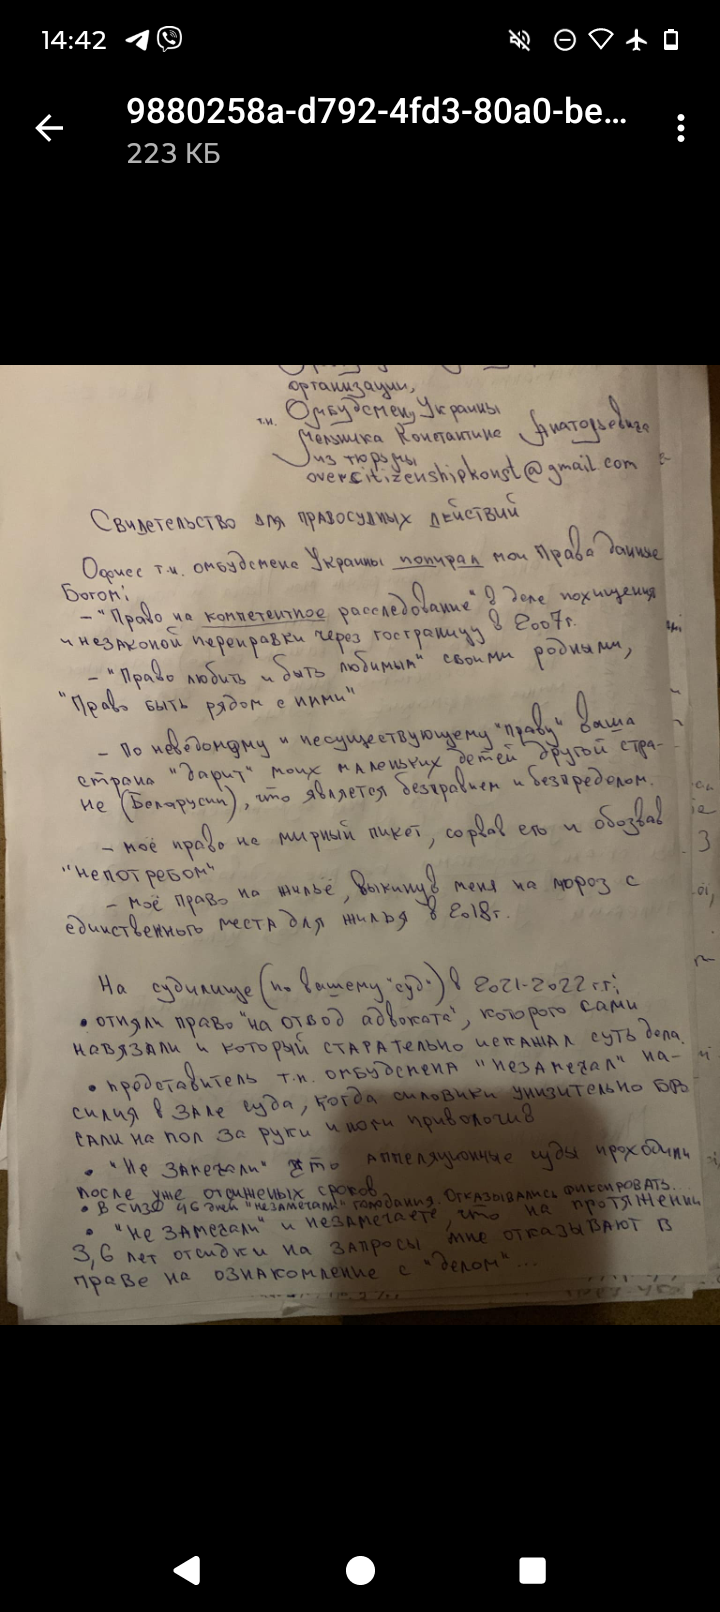 14:42
9880258a-d792-4fd3-80a0-be...
223 КБ
организации,
т.н. Омбудсмену Украины
Мельника Константина Анатольевича
из тюрьмы
overcitizenshipkonst@gmail.com
Свидетельство для правосудных действий
Офис т.н. омбудсмена Украины попирал мои Права данные
Богом:
- "Право на компетентное расследование" в деле похищения
и незаконой переправки через госграницу в 2007г.
- "Право любить и быть любимым" своими родными,
"Право быть рядом с ними"
- По неведомому и несуществующему "праву" ваша
страна "дарит" моих маленьких детей другой стра-
не (Беларусии), что является безправием и безпределом.
- моё право на мирный пикет, сорвав его и обозвав
"непотребом"
- моё право на жильё, выкинув меня на мороз с
единственного места для жилья в 2018г.
На судилище (по вашему "суд") в 2021-2022гг;
• отняли право "на отвод адвоката", которого сами
навязали и который старательно искажал суть дела.
• представитель т.н. омбудсмена "незамечал" на-
силия в зале суда, когда силовики унизительно бр
сали на пол за руки и ноги приволочив
• "Не замечали" что аппеляционные суды проходили
после уже отсиженых сроков
• В СИЗО 46 дней "незамечали" голодания. Отказывались фиксировать.
• "Не замечали" и незамечаете, что на протяжении
3,6 лет отсидки на запросы мне отказывают в
праве на ознакомление с "делом"...